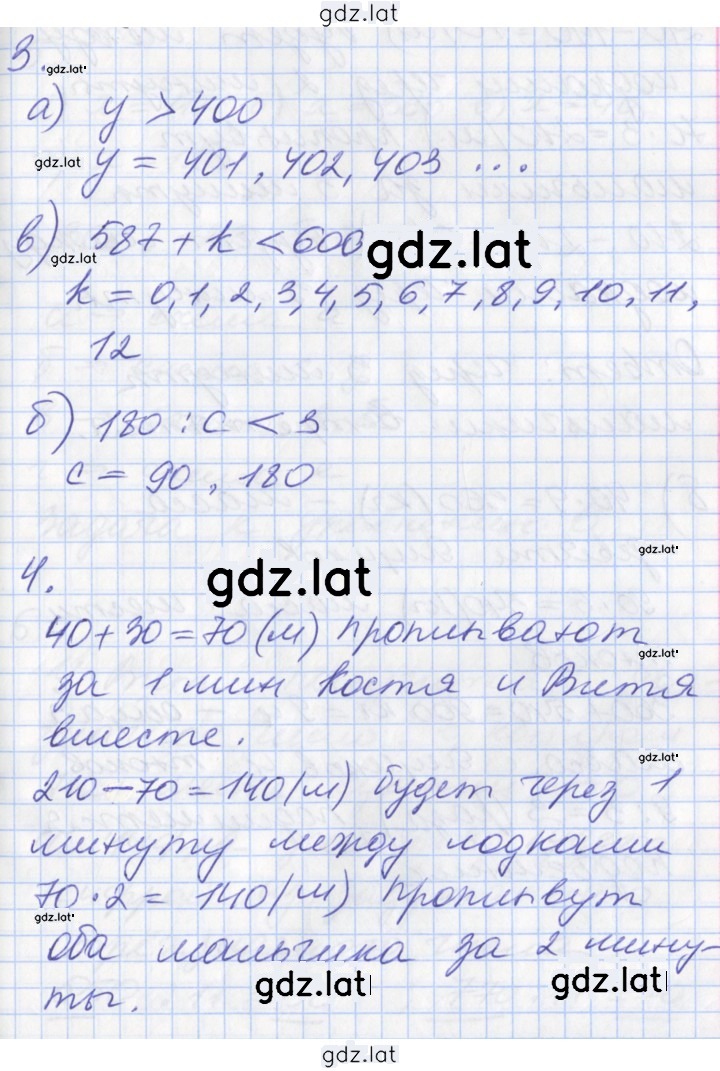 gdz.lat
3.
gdz.lat
а) y > 400
gdz.lat
y = 401, 402, 403 ...
в) 587 + k < 600
gdz.lat
gdz.lat
k = 0, 1, 2, 3, 4, 5, 6, 7, 8, 9, 10, 11,
12
б) 180 : c < 3
c = 90, 180
gdz.lat
4.
gdz.lat
40 + 30 = 70 (м) проплывают
gdz.lat
за 1 мин Костя и Витя
вместе.
gdz.lat
210 - 70 = 140 (м) будет через 1
минуту между лодками
70 · 2 = 140 (м) проплывут
gdz.lat
оба мальчика за 2 мину-
ты.
gdz.lat
gdz.lat
gdz.lat